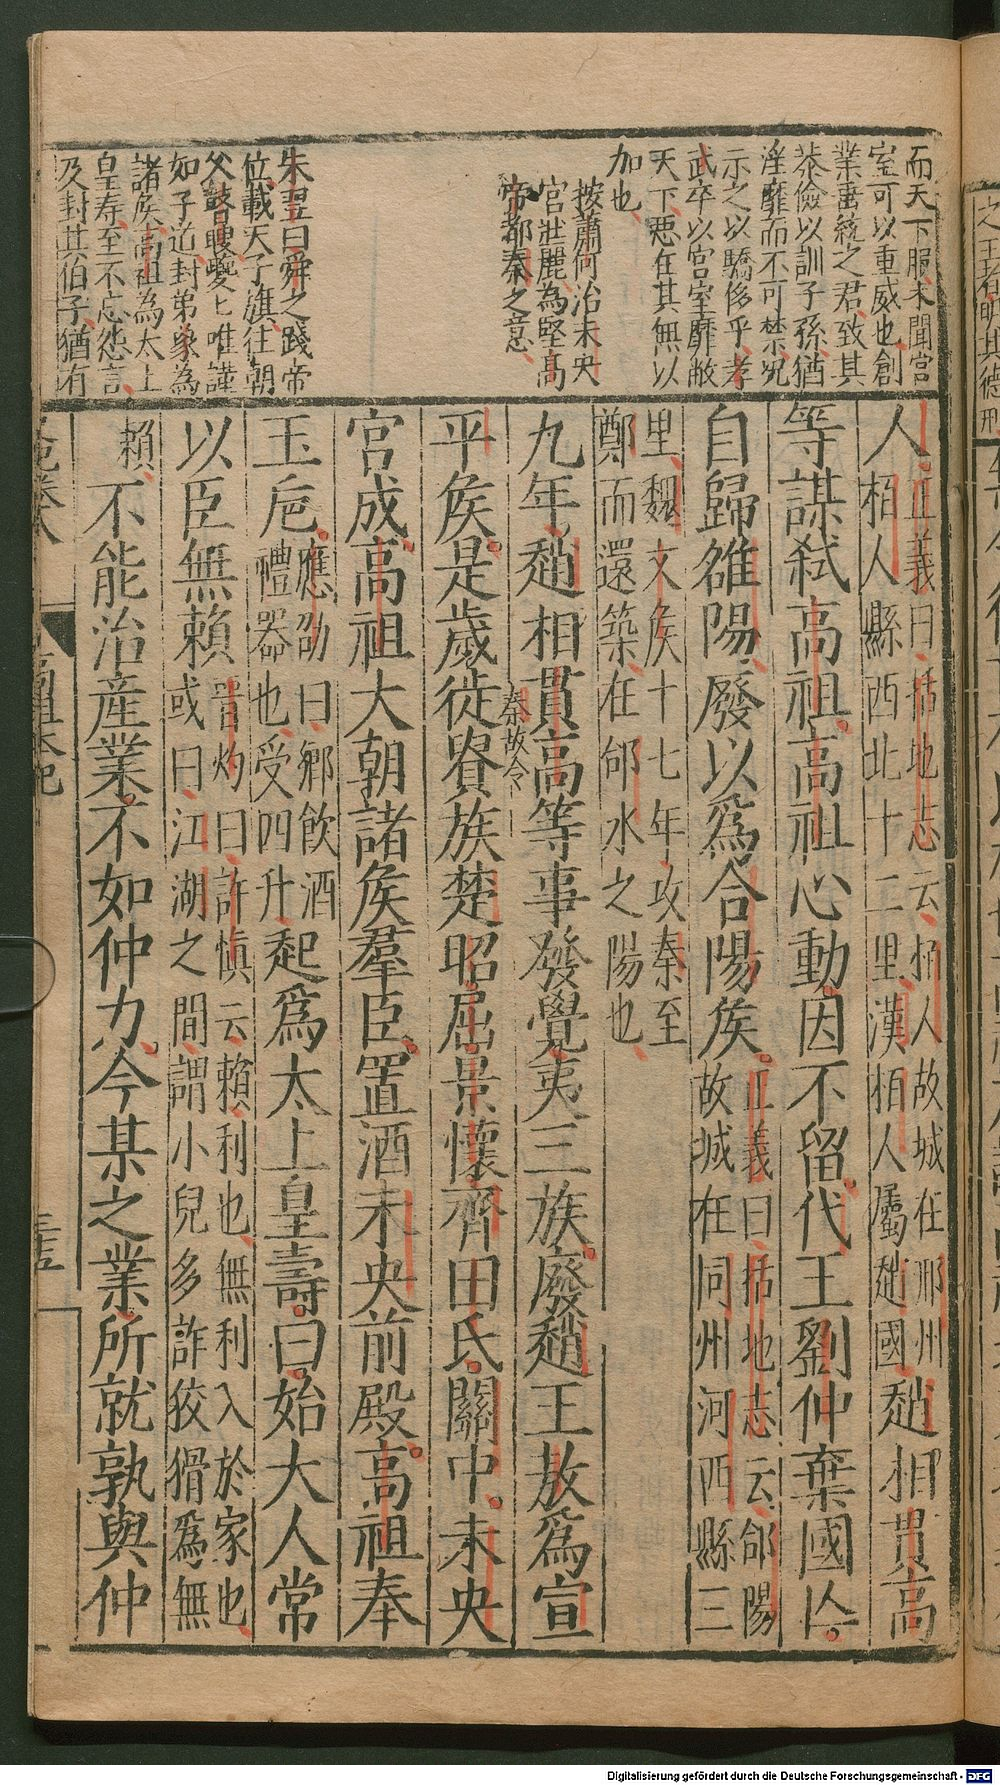 而天下服未聞宮
室可以重威也創
業垂統之君致其
恭儉以訓子孫猶
淫靡而不可禁況
示之以驕侈乎孝
武卒以宮室靡敝
天下惡在其無以
加也
按蕭何治未央
宮壯麗為堅高
帝都秦之意
朱翌曰舜之踐帝
位載天子旗往朝
父瞽瞍夔匕唯謹
如子道封弟象為
諸侯高祖為太上
皇寿至不忘怨言
及封其伯子猶有
人正義曰括地志云栢人故城在邢州
栢人縣西北十二里漢栢人屬趙國趙相貫高
等謀弑高祖高祖心動因不留代王劉仲棄國亾
自歸雒陽廢以爲合陽侯正義曰括地志云郃陽
故城在同州河西縣三
里魏文侯十七年攻秦至
鄭而還築在郃水之陽也
九年趙相貫高等事發覺夷三族廢趙王敖爲宣
平侯是歲徙貴族楚昭屈景懷齊田氏關中未央
秦故令
宮成高祖大朝諸侯羣臣置酒未央前殿高祖奉
玉巵應劭曰鄉飲酒
禮器也受四升起爲太上皇壽曰始大人常
以臣無賴晋灼曰許慎云賴利也無利入於家也
或曰江湖之間謂小兒多詐狡猾爲無
賴不能治産業不如仲力今某之業所就孰與仲
卷八
高祖本紀
三五
之王者明其德刑
Digitalisierung gefördert durch die Deutsche Forschungsgemeinschaft - DFG